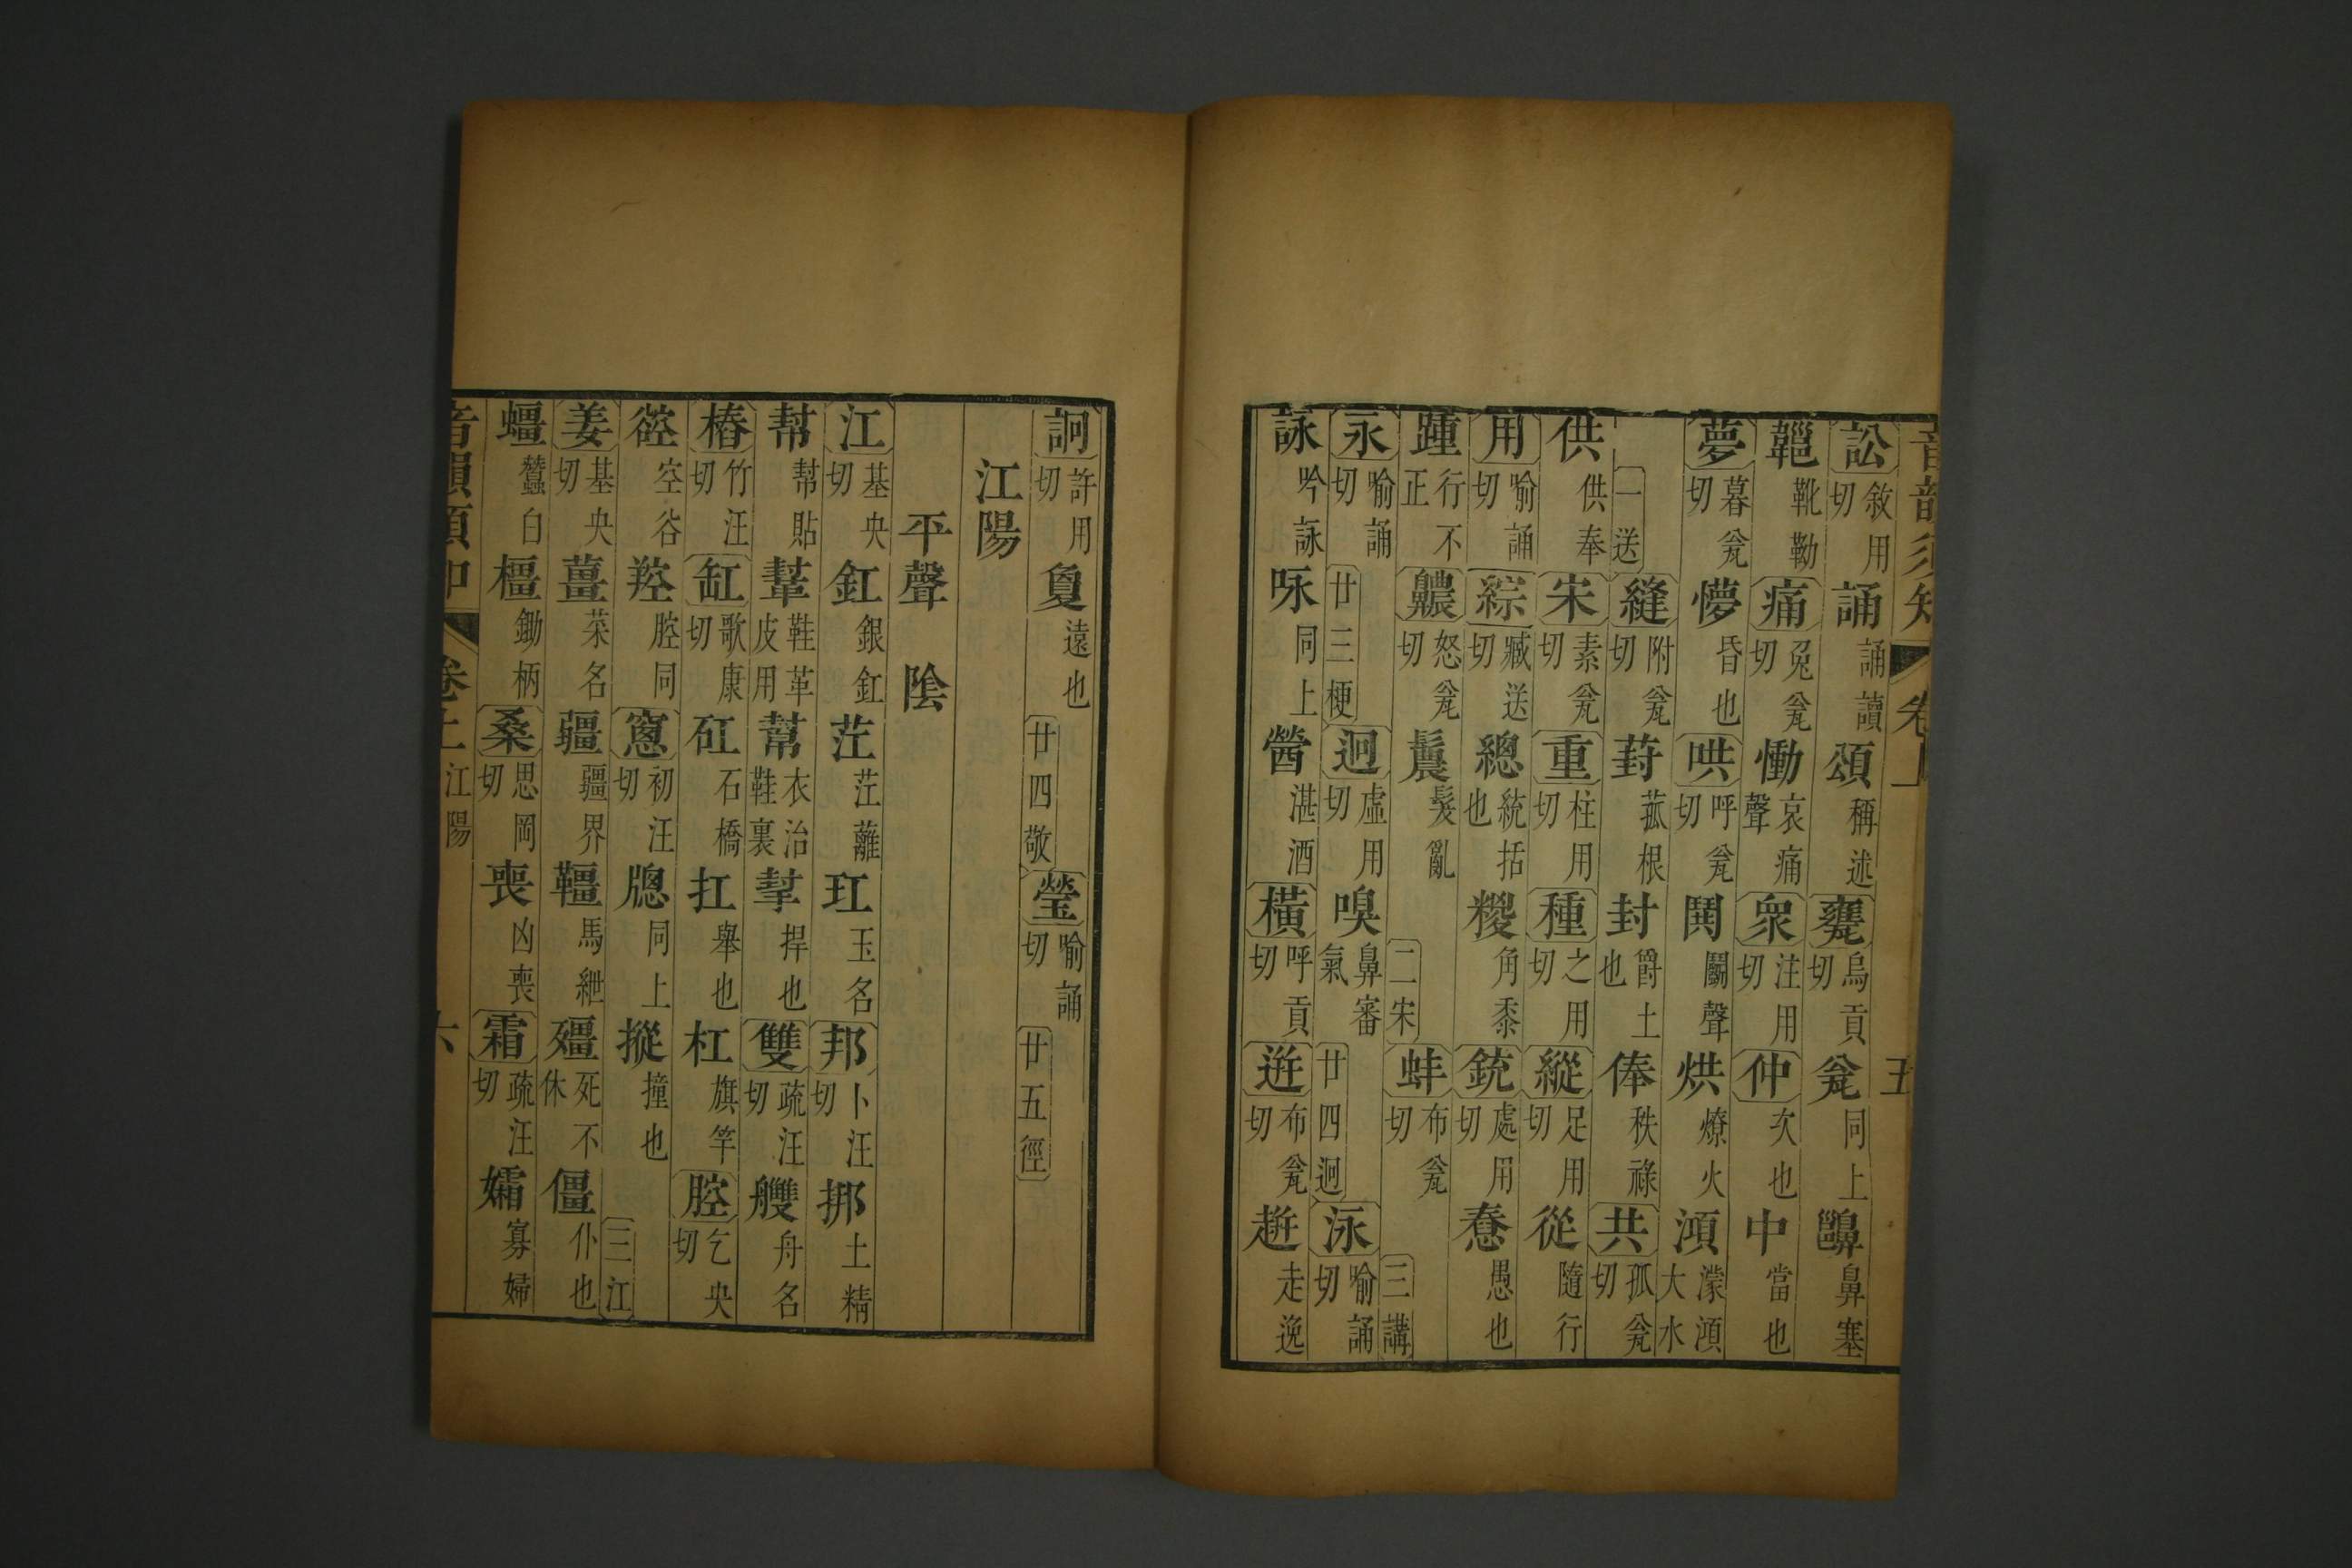 音韻須知 卷上 五
訟 敘用切 誦 誦讀 頌 稱述 甕 烏貢切 瓮 同上 齆 鼻塞
靶 靴勒 痛 兔瓮切 慟 哀痛聲 衆 注用切 仲 次也 中 當也
夢 暮瓮切 懜 昏也 哄 呼瓮切 鬨 鬭聲 烘 燎火 澒 濛澒大水
一送 縫 附瓮切 葑 菰根 封 爵土也 俸 秩祿 共 孤瓮切
供 供奉 宋 素瓮切 重 柱用切 種 之用切 縱 足用切 從 隨行
用 喻誦切 綜 臧送切 總 統括也 糉 角黍 銃 處用切 惷 愚也
踵 行不正 齈 怒瓮切 鬞 髮亂 二宋 蚌 布瓮切 三講
永 喻誦切 廿三梗 迥 虛用切 嗅 鼻審氣 廿四迥 泳 喻誦切
詠 吟詠 咏 同上 醟 湛酒 橫 呼貢切 迸 布瓮切 趰 走逸
詗 許用切 敻 遠也 廿四敬 瑩 喻誦切 廿五徑
江陽
平聲 陰
江 基央切 釭 銀釭 茳 茳蘺 玒 玉名 邦 卜汪切 挷 土精
幫 幫貼 鞤 鞋革皮用 幇 衣治鞋裏 㨍 捍也 雙 疏汪切 艭 舟名
樁 竹汪切 缸 歌康切 矼 石橋 扛 舉也 杠 旗竿 腔 乞央切
谾 空谷 羫 腔同 窻 初汪切 牕 同上 摐 撞也 三江
姜 基央切 薑 菜名 疆 疆界 韁 馬紲 殭 死不休 僵 仆也
蟺 蠶白 橿 鋤柄 桑 思岡切 喪 凶喪 霜 疏汪切 孀 寡婦
音韻須知 卷上 江陽 六